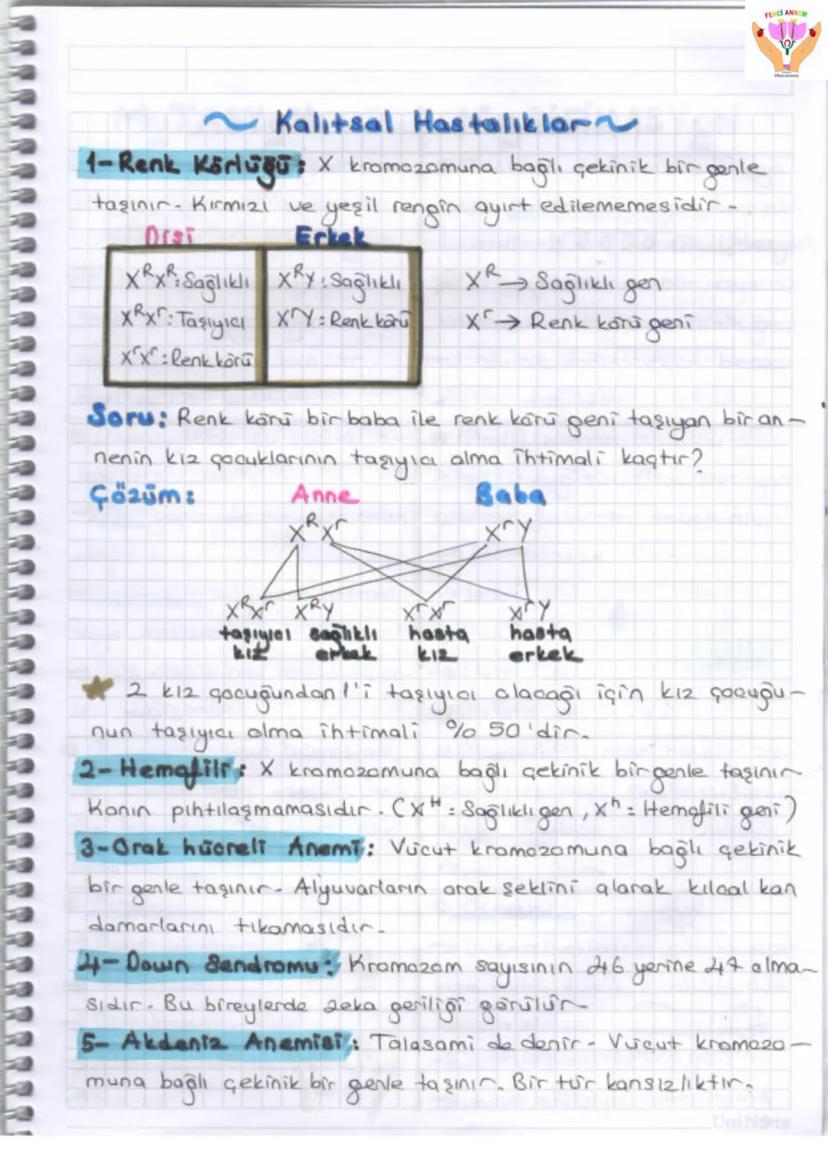 FENCİ ANNEM
~ Kalıtsal Hastalıklar ~
1- Renk Körlüğü: X kromozomuna bağlı çekinik bir genle
taşınır. Kırmızı ve yeşil rengin ayırt edilememesidir.
Dişi Erkek
XᴿXᴿ: Sağlıklı XᴿY: Sağlıklı Xᴿ → Sağlıklı gen
XᴿXʳ: Taşıyıcı XʳY: Renk körü Xʳ → Renk körü geni
XʳXʳ: Renk körü
Soru: Renk körü bir baba ile renk körü geni taşıyan bir an-
nenin kız çocuklarının taşıyıcı olma ihtimali kaçtır?
Çözüm: Anne Baba
XᴿXʳ XʳY
XᴿXʳ XᴿY XʳXʳ XʳY
taşıyıcı sağlıklı hasta hasta
kız erkek kız erkek
2 kız çocuğundan 1'i taşıyıcı olacağı için kız çocuğu-
nun taşıyıcı olma ihtimali % 50'dir.
2- Hemofili: X kromozomuna bağlı çekinik bir genle taşınır
Kanın pıhtılaşmamasıdır. (Xᴴ = Sağlıklı gen, Xʰ = Hemofili geni)
3- Orak hücreli Anemi: Vücut kromozomuna bağlı çekinik
bir genle taşınır. Alyuvarların orak şeklini alarak kılcal kan
damarlarını tıkamasıdır.
4- Down Sendromu: Kromozom sayısının 46 yerine 47 olma-
sıdır. Bu bireylerde zeka geriliği görülür.
5- Akdeniz Anemisi: Talasami de denir. Vücut kromozo-
muna bağlı çekinik bir genle taşınır. Bir tür kansızlıktır.
UniNote